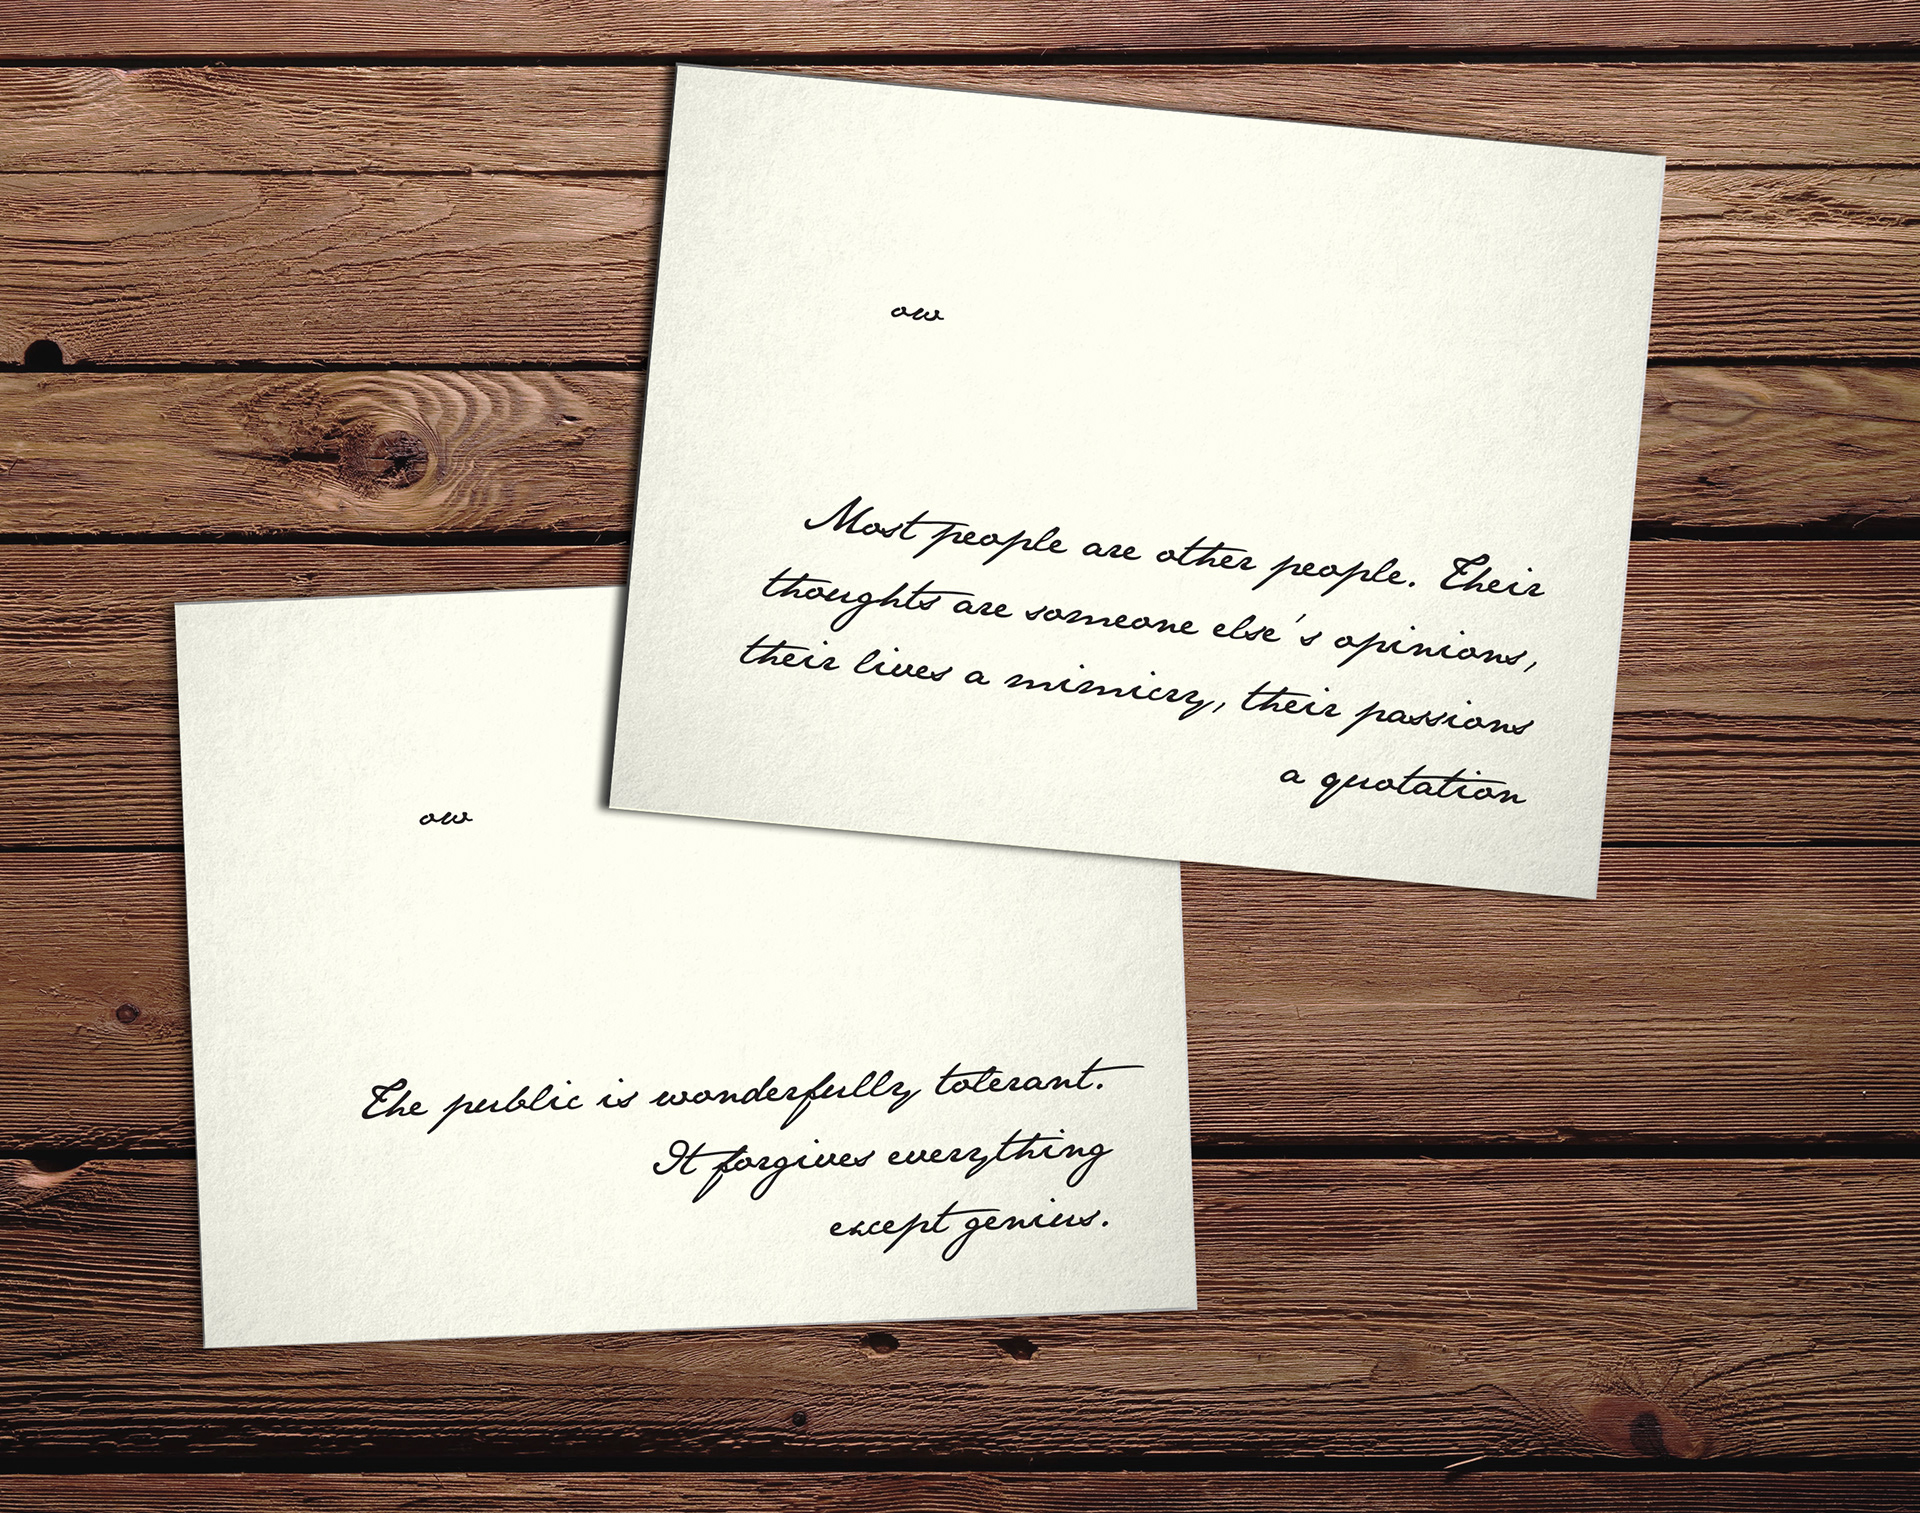 ow
Most people are other people. Their
thoughts are someone else's opinions,
their lives a mimicry, their passions
a quotation
ow
The public is wonderfully tolerant.
It forgives everything
except genius.